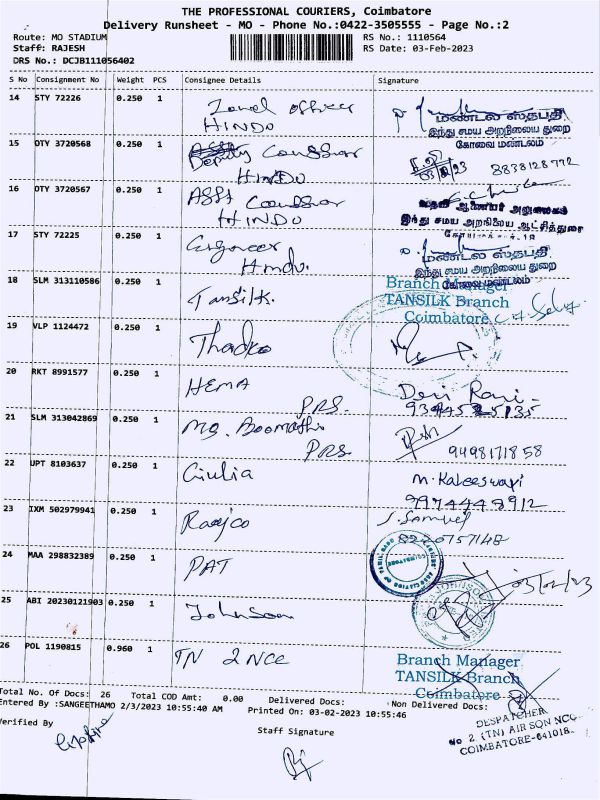 THE PROFESSIONAL COURIERS, Coimbatore
Delivery Runsheet - MO - Phone No.:0422-3505555 - Page No.:2
Route: MO STADIUM
RS No.: 1110564
Staff: RAJESH
RS Date: 03-Feb-2023
DRS No.: DCJB111056402
S No Consignment No Weight PCS Consignee Details Signature
14 STY 72226 0.250 1 Zonal Officer
HINDO
மண்டல ஸ்தபதி
இந்து சமய அறநிலைய துறை
கோவை மண்டலம்
15 OTY 3720568 0.250 1 Deputy
HINDO
8838128772
16 OTY 3720567 0.250 1 ASST
HINDO
இந்து சமய அறநிலைய ஆட்சித்துறை
17 STY 72225 0.250 1 Engineer
Hindu.
மண்டல ஸ்தபதி
இந்து சமய அறநிலைய துறை
கோவை மண்டலம்
18 SLM 313110586 0.250 1 Tansilk.
Branch Manager
TANSILK Branch
Coimbatore
19 VLP 1124472 0.250 1
20 RKT 8991577 0.250 1 HEMA
PRS.
21 SLM 313042869 0.250 1 MS. Boomathi
PRS.
9498171858
22 UPT 8103637 0.250 1 Giulia
M. Kaleeswari
23 IXM 502979941 0.250 1
J. Samuel
24 MAA 298832389 0.250 1 PAT
03/02/23
25 ABI 20230121903 0.250 1 Johnson
26 POL 1190815 0.960 1 TN 2 NCC
Branch Manager
TANSILK Branch
Coimbatore
Total No. Of Docs: 26 Total COD Amt: 0.00 Delivered Docs: Non Delivered Docs:
Entered By :SANGEETHAMO 2/3/2023 10:55:40 AM Printed On: 03-02-2023 10:55:46
DESPATCHER
No 2 (TN) AIR SQN NCC
COIMBATORE-641018
Verified By
Staff Signature